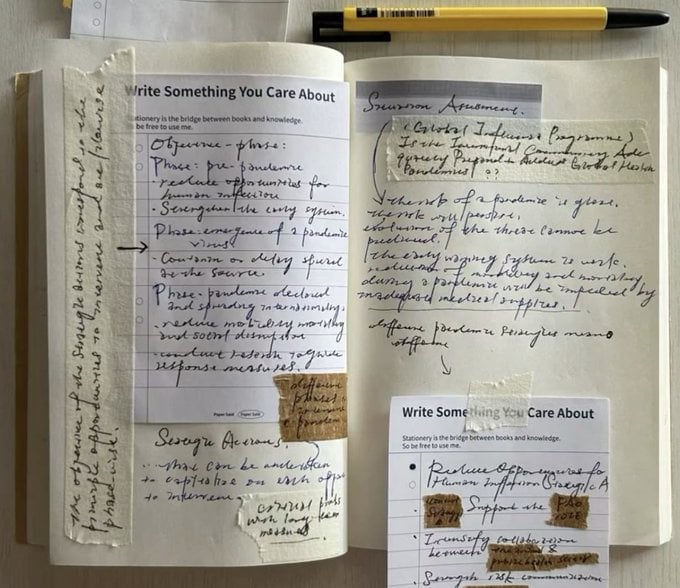 The objective of the strategic actions correspond to the
principle opportunities to intervene and are
phased-wise.
Write Something You Care About
Stationery is the bridge between books and knowledge.
So be free to use me.
Objective - phase:
Phase: pre-pandemic
- reduce opportunities for
human infection
- Strengthen the early system.
Phase: emergence of a pandemic
virus
- Contain or delay spread
at the source
Phase - pandemic declared
and spreading internationally
- reduce morbidity mortality
and social disruption
- conduct research to guide
response measures.
different
phases
pandemic
Paper Said
Paper Said
Strategic Actions,
that can be undertaken
to capitalise on each
to intervene
with long-term
measures
Situation Assessment.
(Global Influenza Programme)
Is the International Community
Prepared to Global Health
Pandemics ??
the risk of a pandemic is
the risk will persist,
evolution of the threat cannot be
predicted.
the early warning system is weak.
reduction of morbidity and mortality
during a pandemic will be impeded by
inadequate medical supplies.
different pandemic strategies
Write Something You Care About
Stationery is the bridge between books and knowledge.
So be free to use me.
Reduce Opportunities for
Human Infection (Strategic A
Support the FAO
Intensify collaboration
between &
Strength risk communication